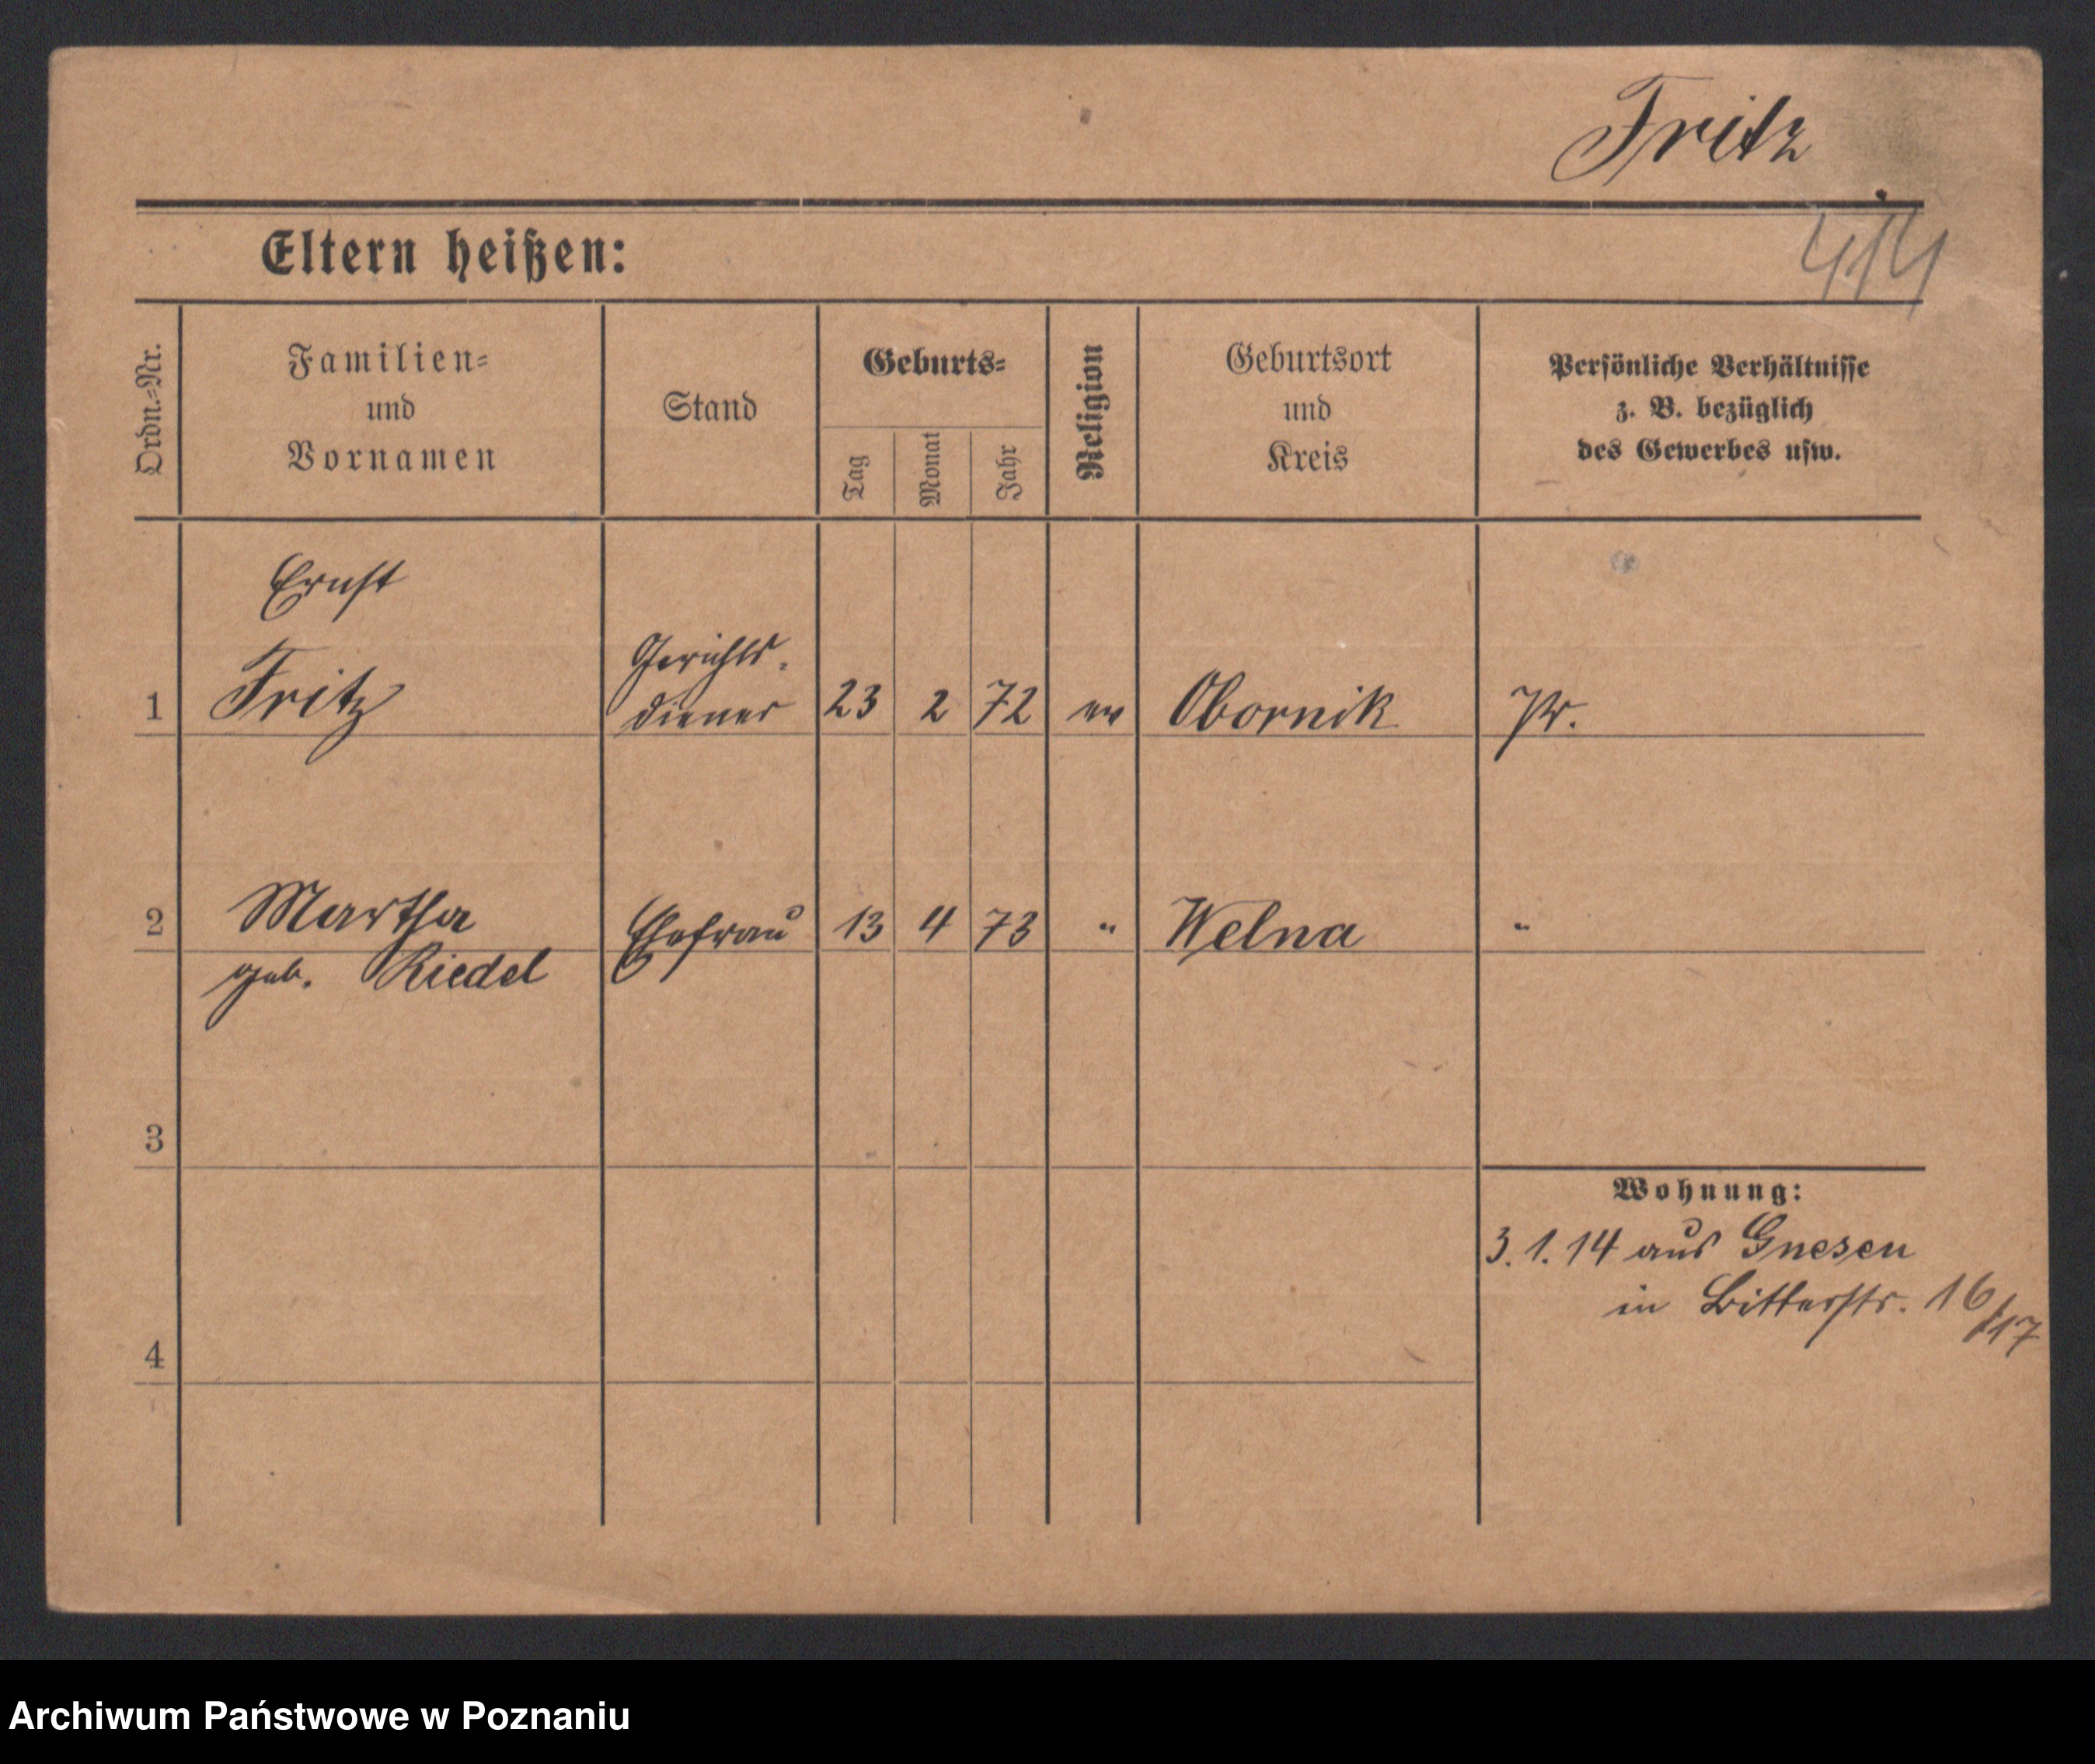 Fritz
414
Eltern heißen:
Ordn.-Nr.
Familien-
und
Vornamen
Stand
Geburts-
Tag
Monat
Jahr
Religion
Geburtsort
und
Kreis
Persönliche Verhältnisse
z. B. bezüglich
des Gewerbes usw.
Ernst
1 Fritz Gerichts-
diener 23 2 72 ev Obornik Pr.
2 Martha Ehefrau 13 4 73 " Welna "
geb. Riedel
3
Wohnung:
3.1.14 aus Gnesen
in Bitterstr. 16/17
4
Archiwum Państwowe w Poznaniu